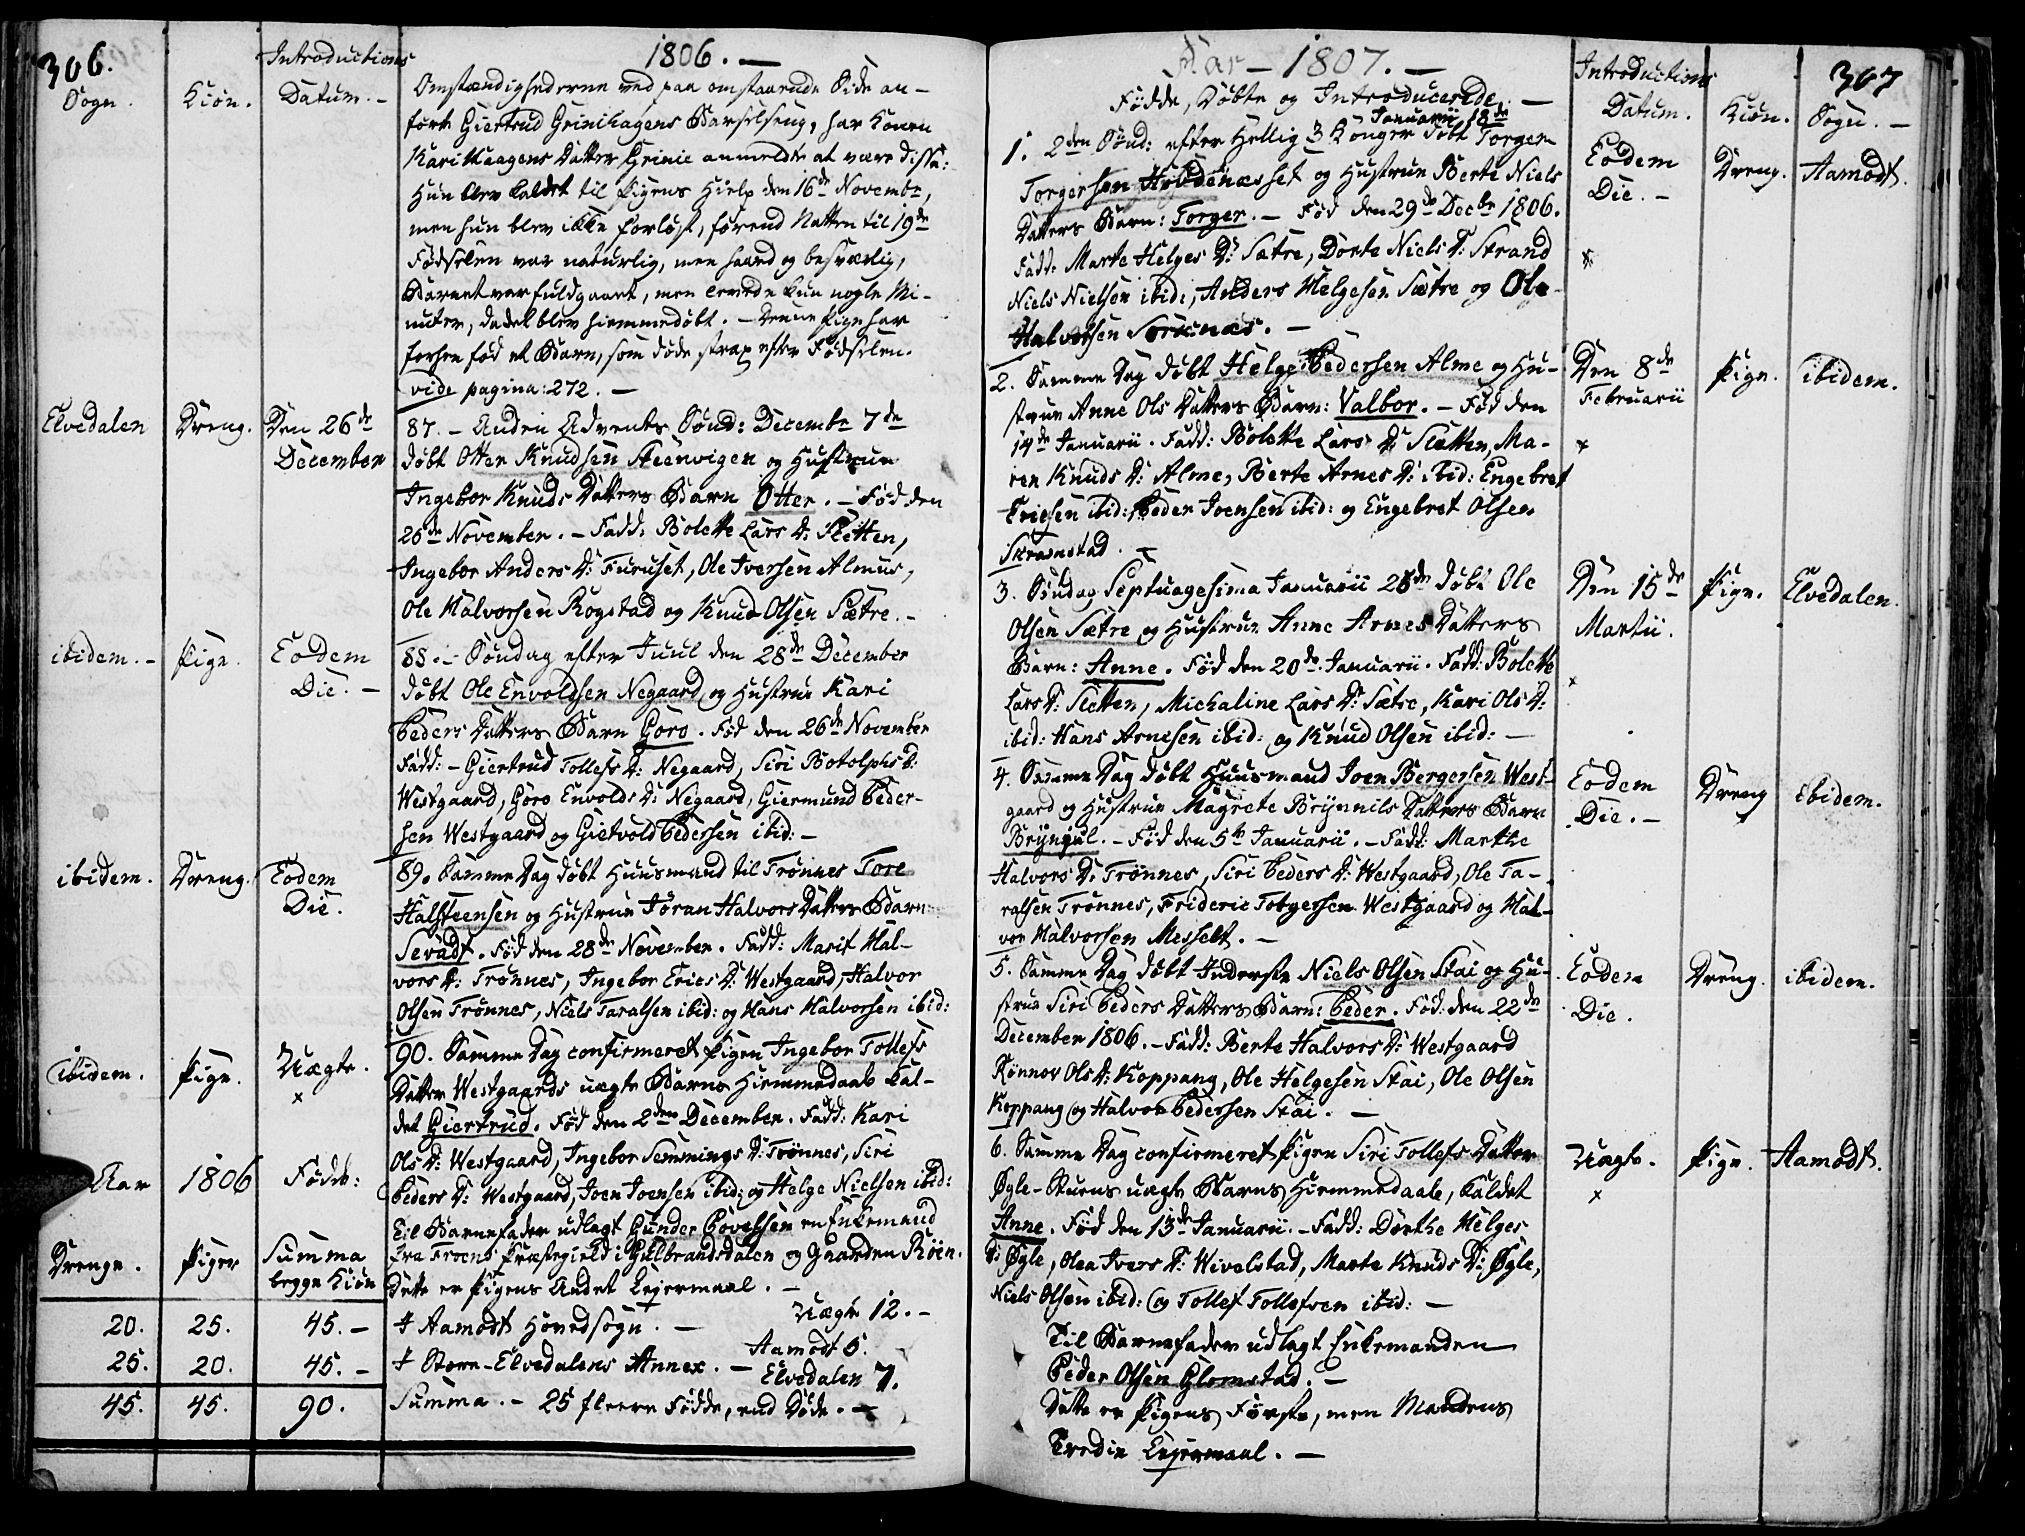 306.
1806. —
Sogn. Kiön. Introductions Datum. —
Omstændighederne ved paa omstaaende Side an-
förte Giertrud Grinihagens Barselseng, har Konen
Kari Haagens Datter Grinie anmeldte at være disse:
Hun blev kaldet til Pigens Hielp den 16de Novembr,
men hun blev ikke forlöst, förend Natten til 19de
Födselen var naturlig, men haard og besværlig,
Barnet var fuldgaaet, men levede kun nogle Mi-
nuter, da det blev hiemmedöbt. — Denne Pige har
forhen föd et Barn, som döde strax efter Födselen.
vide pagina: 272. —
Elvedalen Dreng. Den 26de December
87. — Anden Advents Sönd: Decembr 7de
döbt Otter Knudsen Steenvigen og Hustrue
Ingebor Knuds Datters Barn Otter. — Föd den
26de November. — Fadd: Bolette Lars D: Sletten,
Ingebor Anders D: Furuset, Ole Iversen Almus,
Ole Halvorsen Rogstad og Knud Olsen Sætre. —
ibidem. — Pige. Eodem Die. —
88. — Söndag efter Juul den 28de December
döbt Ole Envoldsen Negaard og Hustrue Kari
Peders Datters Barn Goro. Föd den 26de November
Fadd: — Giertrud Tollefs D: Negaard, Siri Botolphs D:
Westgaard, Goro Envolds D: Negaard, Giermund Peder-
sen Westgaard og Gietvold Pedersen ibid: —
ibidem. Dreng. Eodem Die.
89. Samme Dag döbt Huusmand til Trönnes Tore
Halsteensen og Hustrue Jöran Halvors Datters Barn
Sevadt. Föd den 28de November. Fadd: Marit Hal-
vors D: Trönnes, Ingebor Erics D: Westgaard, Halvor
Olsen Trönnes, Niels Taralsen ibid: og Hans Halvorsen ibid:
ibidem. Pige. Uægte. x
90. Samme Dag confirmeret Pigen Ingebor Tollefs
Datter Westgaards uægte Barns Hiemmedaab kal-
det Giertrud. Föd den 2den December. Fadd: Kari
Ols D: Westgaard, Ingebor Semmings D: Trönnes, Siri
Peders D: Westgaard, Joen Joensen ibid: og Helge Nielsen ibid:
Til Barnefader udlagt Gunder Povelsen en Enkemand
fra Froens Præstegield i Gulbrandsdalen og Gaarden Röen.
Dette er Pigens Andet Leiermaal. —
Aar 1806 Födte:
Drenge. Piger Summa begge Kiön
20. 25. 45. — I Aamodt Hovedsogn. — Uægte 12. —
Aamodt 5.
25. 20. 45. — I Store-Elvedalens Annex. — Elvedalen 7.
45. 45. 90. Summa. — 25 fleere Födde, end Döde. —
307
Aar — 1807. —
Födde, Döbte og Introducerede. —
Introductions Datum. Kiön. Sogn. —
Januarii 18de
1. 2den Sönd: efter Hellig 3 Konger döbt Torger
Torgersen Hovdenæsset og Hustrue Berte Niels
Datters Barn: Torger. — Föd den 29de Decbr 1806.
Fadd: Marte Helges D: Sætre, Dorte Niels D: Strand
Niels Nielsen ibid:, Anders Helgesen Sætre og Ole
Halvorsen Sorknæs. —
Eodem Die. — Dreng. Aamodt.
x
2. Samme Dag döbt Helge Pedersen Alme og Hu-
strue Anne Ols Datters Barn: Valbor. — Föd den
14de Januarii. Fadd: Bolette Lars D: Sletten, Ma-
ren Knuds D: Alme, Berte Arnes D: ibid: Engebret
Ericsen ibid: Peder Joensen ibid: og Engebret Olsen
Skramstad. —
Den 8de Februarii Pige. ibidem.
x
3. Söndag Septuagesima Januarii 25de döbt Ole
Olsen Sætre og Hustrue Anne Arnes Datters
Barn: Anne. Föd den 20de Januarii. Fadd: Bolette
Lars D: Sletten, Michaline Lars D: Sætre, Kari Ols D:
ibid: Hans Arnesen ibid: og Knud Olsen ibid: —
Den 15de Martii. Pige. Elvedalen.
x
4. Samme Dag döbt Huusmand Joen Bergersen West-
gaard og Hustrue Magrete Brynnils Datters Barn
Bryngul. — Föd den 5te Januarii. — Fadd: Marthe
Halvors D: Trönnes, Siri Peders D: Westgaard, Ole Ta-
ralsen Trönnes, Frideric Torgersen Westgaard og Hal-
vor Halvorsen Messelt. —
Eodem Die. — Dreng ibidem.
5. Samme Dag döbt Inderste Niels Olsen Stai og Hu-
strue Siri Peders Datters Barn: Peder. Föd den 22de
December 1806. — Fadd: Berte Halvors D: Westgaard
Rönnov Ols D: Koppang, Ole Helgesen Stai, Ole Olsen
Koppang og Halvor Pedersen Stai. —
Eodem Die. Dreng. ibidem.
6. Samme Dag confirmeret Pigen Siri Tollefs Datter
Øgle-Stuens uægte Barns Hiemmedaab, kaldet
Anne. Föd den 13de Januarii. — Fadd: Dorthe Helges
D: Øgle, Olea Ivers D: Wivelstad, Marte Knuds D: Øgle,
Niels Olsen ibid: og Tollef Tollefsen ibid: —
Uægte. Pige. Aamodt.
x
Til Barnefader udlagt Enkemanden
Peder Olsen Glomstad. —
Dette er Pigens Förste, men Mandens
Tredie Leiermaal. —